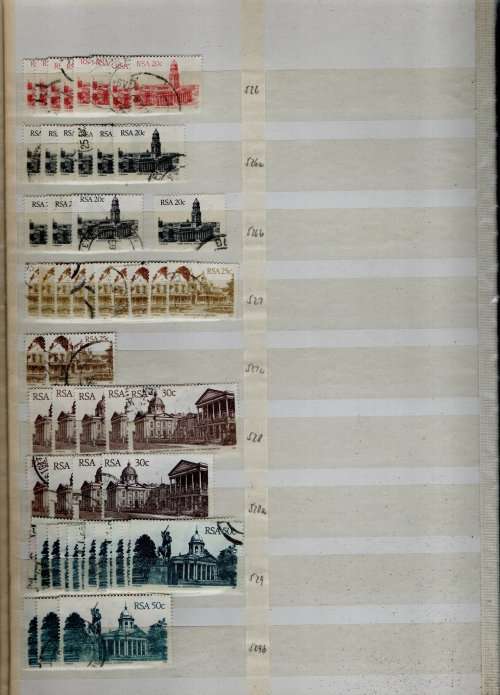 RSA 20c
526
RSA RSA RSA RSA RSA RSA 20c
526a
RSA RSA RSA 20c RSA 20c
526b
RSA 25c
527
RSA 25c
527a
RSA RSA RSA RSA RSA 30c
528
RSA RSA RSA RSA 30c
528a
RSA 50c
529
RSA 50c
529b